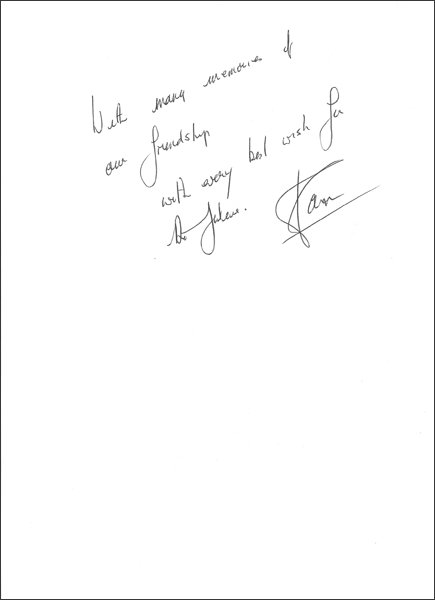 With many memories of
our friendship
with every best wish for
the future.